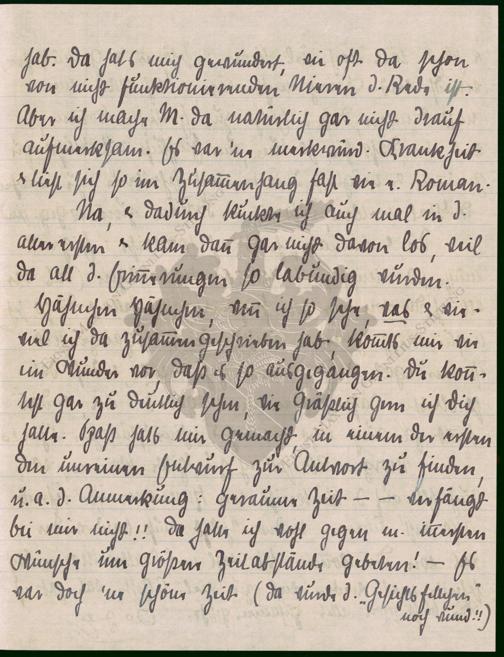 hab. Da hat's mich gewundert, wie oft da schon
von nicht funktionierenden Nieren d. Rede ist.
Aber ich mache M. da natürlich gar nicht drauf
aufmerksam. Es war 'ne merkwürd. Krankheit
& liest sich so im Zusam̄enhang fast wie e. Roman.
Na, & dadurch kuckte ich auch mal in d.
allerersten & kam dan̄ gar nicht davon los, weil
da all d. Erin̄erungen so labündig wurden.
Häschen Häschen, wen̄ ich so sehe, was & wie-
viel ich da zusam̄engeschrieben hab, kom̄ts mir wie
ein Wunder vor, daß es so ausgegangen. Du kon̄-
test gar zu deutlich sehn, wie gräßlich gern ich dich
hatte. Spaß hats mir gemacht in einem der ersten
den unreinen Entwurf zur Antwort zu finden,
u. a. d. Anmerkung: geraume Zeit — — verfängt
bei mir nicht!! Da hatte ich wohl gegen m. in̄ersten
Wünsche um größere Zeitabstände gebeten! — Es
war doch 'ne schöne Zeit (da wurde d. "Gesichts
noch rund!!)